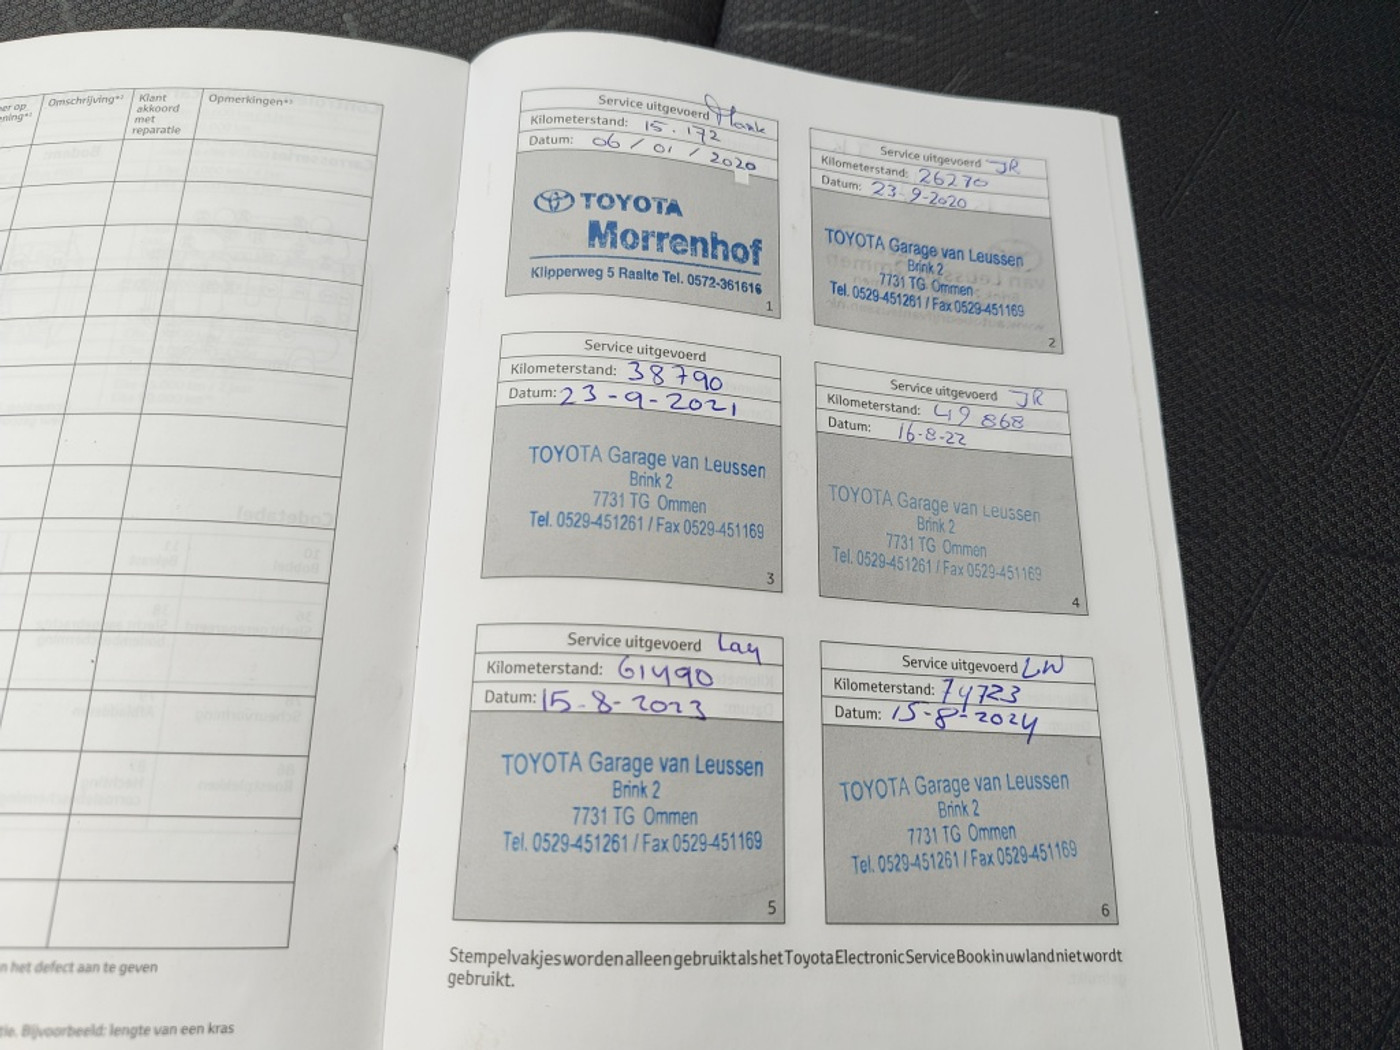 Omschrijving*²
Klant
akkoord
met
reparatie
Opmerkingen*³
n het defect aan te geven
tie. Bijvoorbeeld: lengte van een kras
Service uitgevoerd
Kilometerstand: 15.172
Datum: 06/01/2020
TOYOTA
Morrenhof
Klipperweg 5 Raalte Tel. 0572-361616
1
Service uitgevoerd JR
Kilometerstand: 26270
Datum: 23-9-2020
TOYOTA Garage van Leussen
Brink 2
7731 TG Ommen
Tel. 0529-451261 / Fax 0529-451169
2
Service uitgevoerd
Kilometerstand: 38790
Datum: 23-9-2021
TOYOTA Garage van Leussen
Brink 2
7731 TG Ommen
Tel. 0529-451261 / Fax 0529-451169
3
Service uitgevoerd JR
Kilometerstand: 49868
Datum: 16-8-22
TOYOTA Garage van Leussen
Brink 2
7731 TG Ommen
Tel. 0529-451261 / Fax 0529-451169
4
Service uitgevoerd Lay
Kilometerstand: 61490
Datum: 15-8-2023
TOYOTA Garage van Leussen
Brink 2
7731 TG Ommen
Tel. 0529-451261 / Fax 0529-451169
5
Service uitgevoerd LW
Kilometerstand: 74723
Datum: 15-8-2024
TOYOTA Garage van Leussen
Brink 2
7731 TG Ommen
Tel. 0529-451261 / Fax 0529-451169
6
Stempelvakjes worden alleen gebruikt als het Toyota Electronic Service Book in uw land niet wordt
gebruikt.